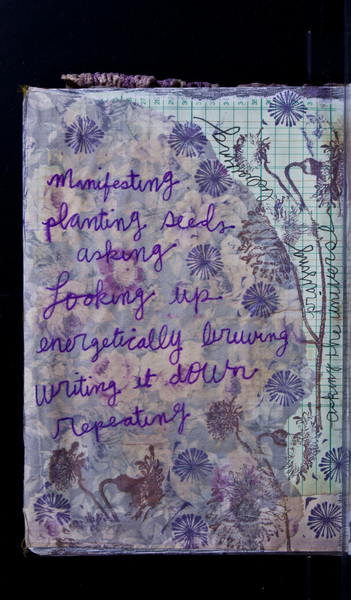 manifesting
planting seeds
asking
Looking up
energetically
writing it down
repeating
asking the universe